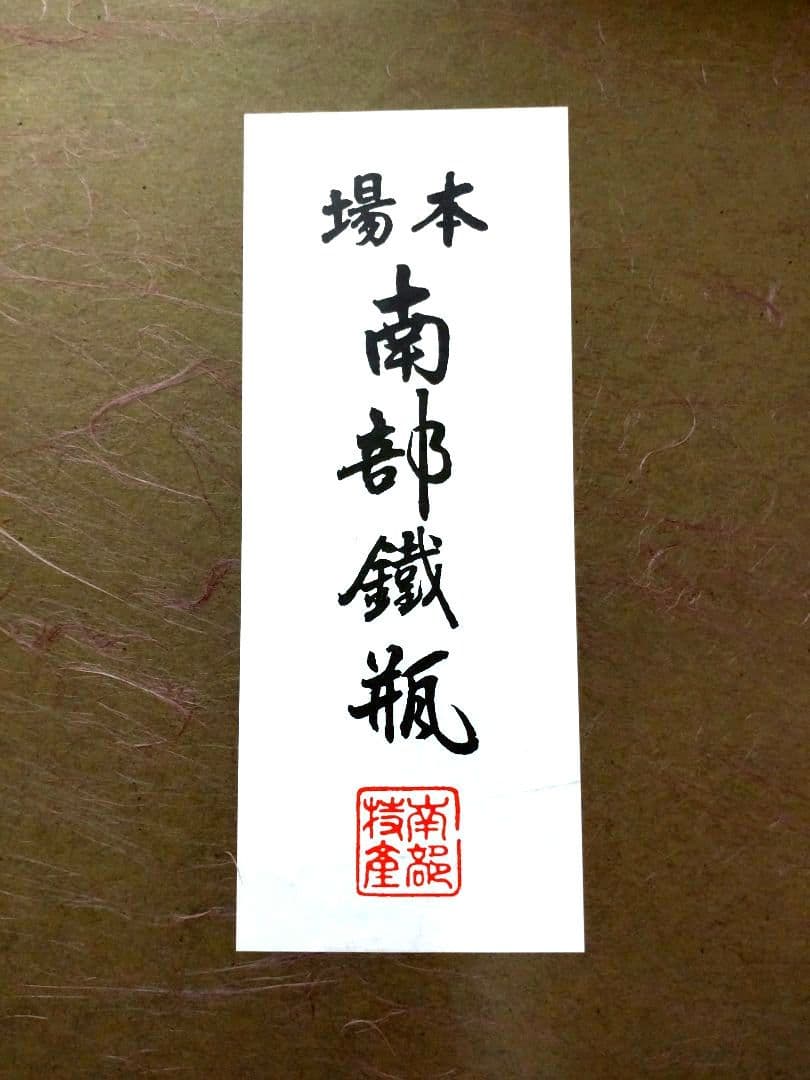 本場
南部鐵瓶
南部
特産